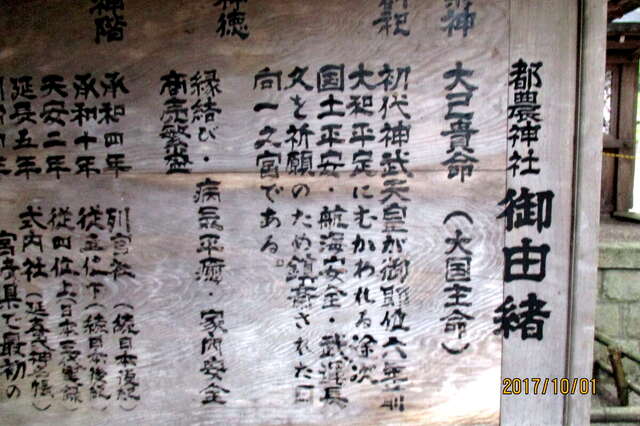 都農神社 御由緒
祭神
大己貴命 (大国主命)
創祀
初代神武天皇が御即位六年前
大和平定にむかわれる途次
国土平安・航海安全・武運長
久を祈願のため鎮斎された日
向一之宮である。
神徳
縁結び・病気平癒・家内安全
商売繁盛
神階
承和四年 列官社 (続日本後紀)
承和十年 従五位下(続日本後紀)
天安二年 従四位上(日本三代実録)
延長五年 式内社 (延喜式神名帳)
宮崎県で最初の
2017/10/01